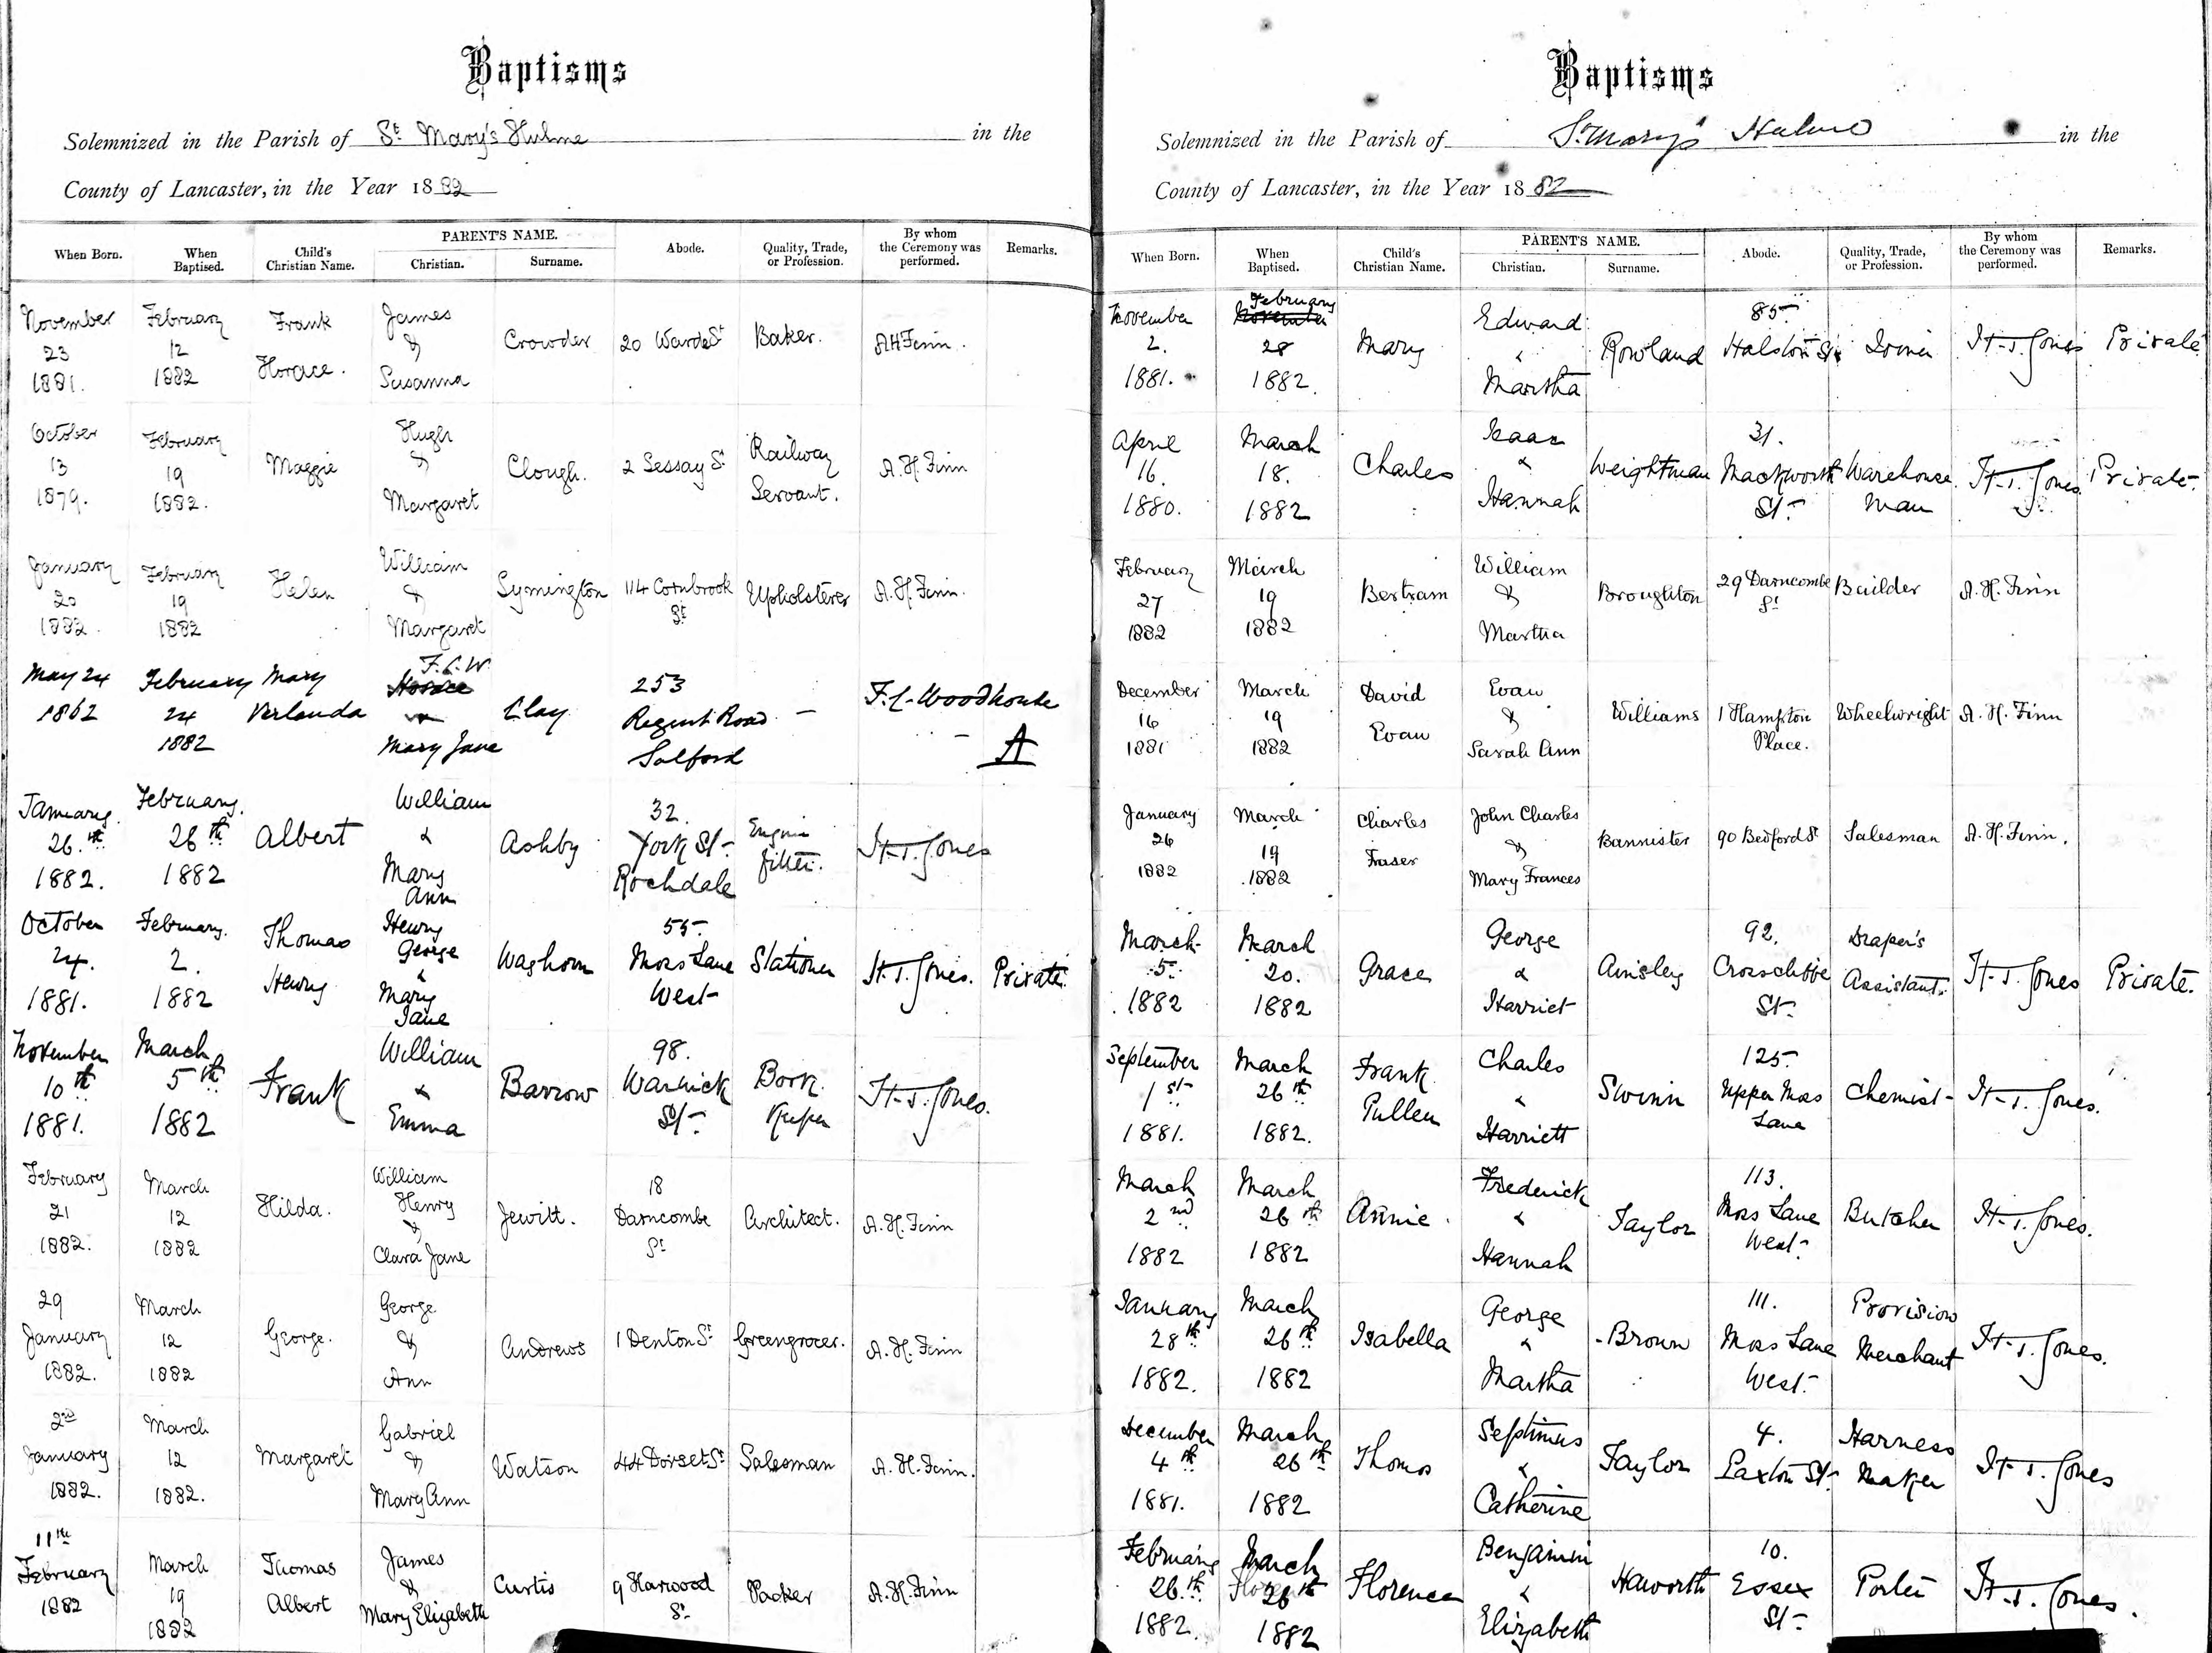 Baptisms
Solemnized in the Parish of St Mary's Hulme in the
County of Lancaster, in the Year 1882
When Born.
When Baptised.
Child's Christian Name.
PARENT'S NAME.
Christian.
Surname.
Abode.
Quality, Trade, or Profession.
By whom the Ceremony was performed.
Remarks.
November 23 1881.
February 12 1882
Frank Horace.
James & Susanna
Crowder
20 Warde St
Baker.
A H Finn.
October 13 1879.
February 19 1882.
Maggie
Hugh & Margaret
Clough.
2 Sessay St
Railway Servant.
A. H. Finn
January 20 1882.
February 19 1882
Helen
William & Margaret
Symington
114 Cornbrook St
Upholsterer
A. H. Finn.
May 24 1862
February 24 1882
Mary Verlenda
F. C. W.
Horace & Mary Jane
Clay
253 Regent Road Salford
—
F. C. Woodhouse
A
January 26.th 1882.
February 26th 1882
Albert
William & Mary Ann
Ashby
32. York St Rochdale
Engine fitter.
H. T. Jones
October 24. 1881.
February. 2. 1882
Thomas Henry
Henry George & Mary Jane
Waghorn
55 Moss Lane West
Stationer
H. T. Jones.
Private.
November 10th 1881.
March 5th 1882
Frank
William & Emma
Barrow
98. Warwick St
Book Keeper
H. T. Jones.
February 21 1882.
March 12 1882
Hilda.
William Henry & Clara Jane
Jewitt.
18 Darncombe St
Architect.
A. H. Finn
29 January 1882.
March 12 1882
George.
George & Ann
Andrews
1 Denton St
Greengrocer.
A. H. Finn
2nd January 1882.
March 12 1882.
Margaret
Gabriel & Mary Ann
Watson
44 Dorset St
Salesman
A. H. Finn.
11th February 1882
March 19 1882
Thomas Albert
James & Mary Elizabeth
Curtis
9 Harwood St
Packer
A. H. Finn
Baptisms
Solemnized in the Parish of St Mary's Hulme in the
County of Lancaster, in the Year 1882
When Born.
When Baptised.
Child's Christian Name.
PARENT'S NAME.
Christian.
Surname.
Abode.
Quality, Trade, or Profession.
By whom the Ceremony was performed.
Remarks.
November 2. 1881.
February November 28 1882.
Mary
Edward & Martha
Rowland
85 Halston St
Joiner
H. T. Jones
Private
April 16. 1880.
March 18. 1882
Charles
Isaac & Hannah
Weightman
31. Mackworth St
Warehouse man
H. T. Jones
Private.
February 27 1882
March 19 1882
Bertram
William & Martha
Broughton
29 Darncombe St
Builder
A. H. Finn
December 16 1881
March 19 1882
David Evan
Evan & Sarah Ann
Williams
1 Hampton Place.
Wheelwright
A. H. Finn
January 26 1882
March 19 1882
Charles Fraser
John Charles & Mary Frances
Bannister
90 Bedford St
Salesman
A. H. Finn.
March 5 1882
March 20. 1882
Grace
George & Harriet
Ainsley
92. Crosscliffe St
Draper's Assistant.
H. T. Jones
Private.
September 1st 1881.
March 26th 1882.
Frank Pullen
Charles & Harriett
Swinn
125 Upper Moss Lane
Chemist
H. T. Jones.
March 2nd 1882
March 26th 1882
Annie
Frederick & Hannah
Taylor
113. Moss Lane West
Butcher
H. T. Jones.
January 28th 1882.
March 26th 1882
Isabella
George & Martha
Brown
111. Moss Lane West
Provision Merchant
H. T. Jones.
December 4th 1881.
March 26th 1882
Thomas
Septimus & Catherine
Taylor
4. Paxton St
Harness Maker
H. T. Jones
February 26th 1882.
March 26th 1882
Florence
Benjamin & Elizabeth
Haworth
10. Essex St
Porter
H. T. Jones.